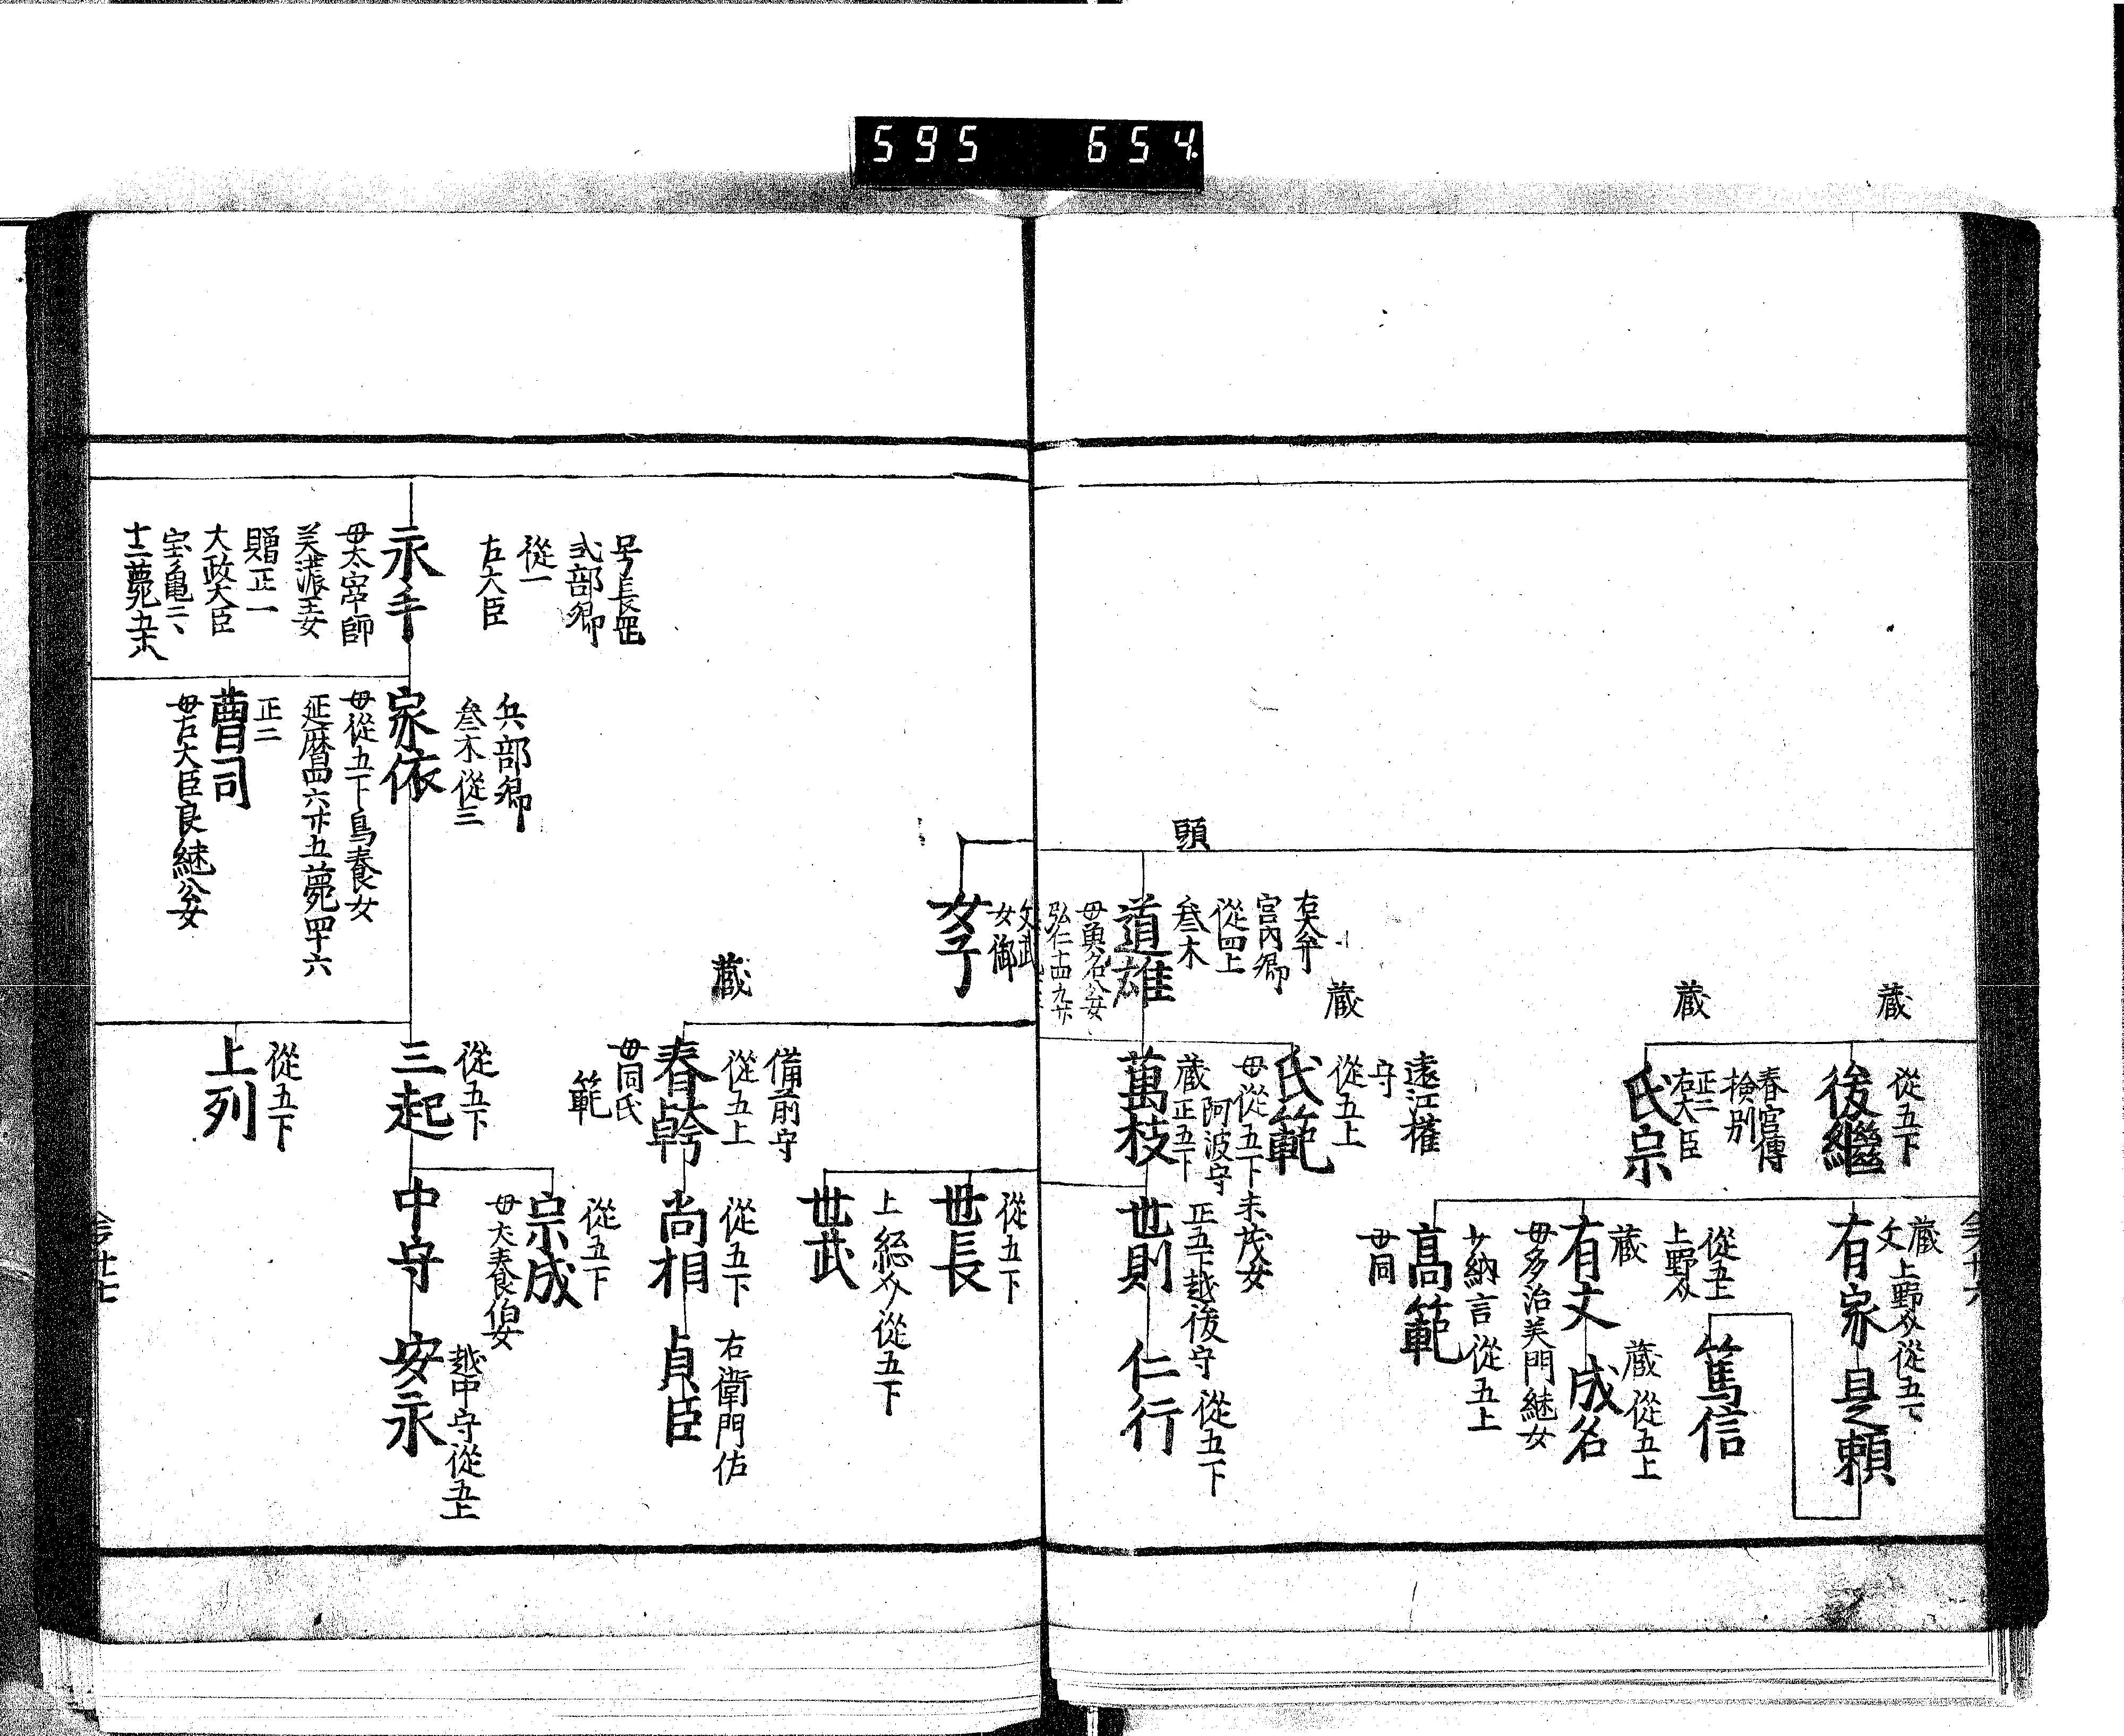 595 654
蔵
從五下
後繼
蔵
春宮傳
檢別
正二
右大臣
氏宗
蔵
文上野介從五下
有家
是頼
從五上
上野介
篤信
蔵
有文
母多治美門継女
蔵從五上
成名
少納言從五上
高範
母同
頭
右大弁
宮内卿
從四上
叅木
道雄
母魚名公女
蔵
遠江權
守
從五上
氏範
母從五下末茂女
阿波守
蔵正五下
萬枝
正五下越後守
世則
從五下
仁行
文武
女御
女子
從五下
世長
上総介從五下
世武
蔵
備前守
從五上
春幹
母同氏
範
從五下
尚相
右衛門佐
貞臣
号長岡
式部卿
從一
左大臣
永手
母太宰帥
美濃王女
贈正一
大政大臣
宝亀二、
兵部卿
叅木從三
家依
母從五下鳥養女
延暦四六廿五薨四十六
正二
曹司
母右大臣良継公女
從五下
三起
從五下
宗成
母犬養伯女
中守
越中守從五上
安永
從五下
上列